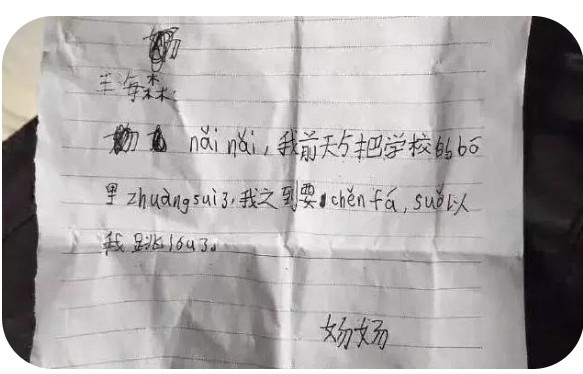 奶
王海森:
nǎi nǎi,我前天与把学校的bō
里zhuàngsuì3,我之到要chěnfá,suǒ以
我跳lóu3。
奶奶